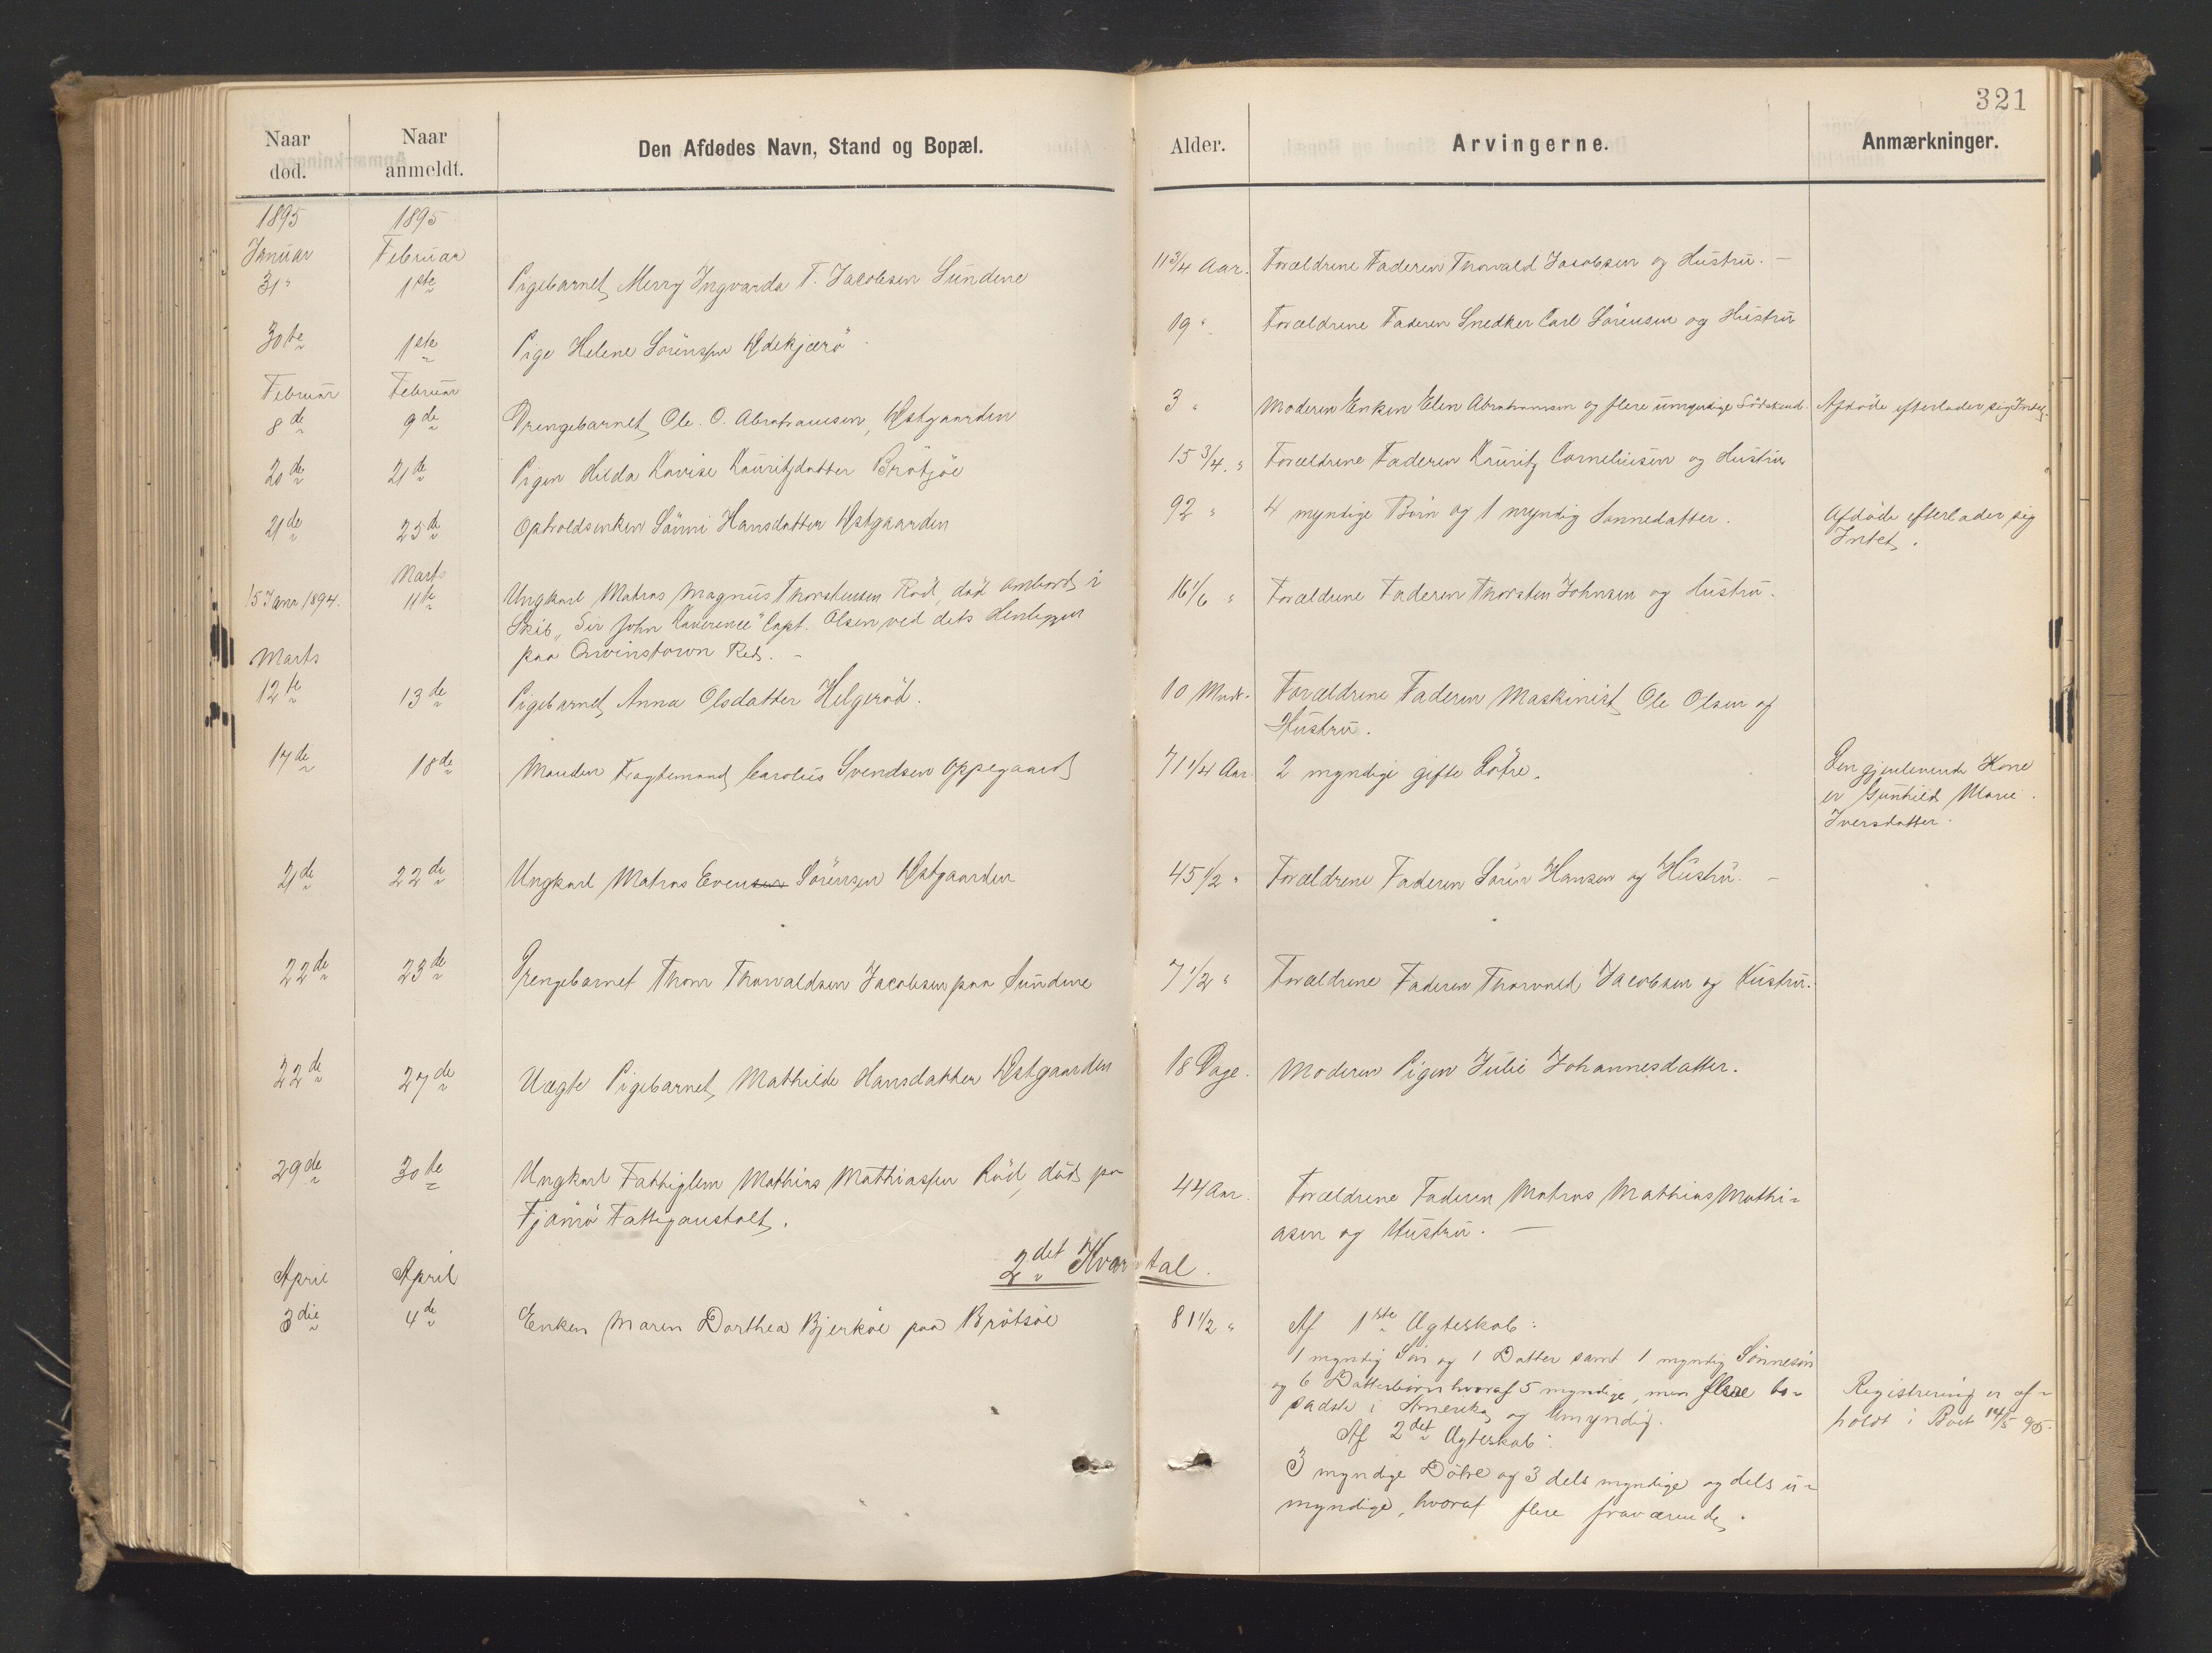 321
Naar død.
Naar anmeldt.
Den Afdødes Navn, Stand og Bopæl.
Alder.
Arvingerne.
Anmærkninger.
1895
1895
Januar
Februar
31"
1ste
Pigebarnet Merry Ingvarda T. Jacobsen Sundene
11 3/4 Aar.
Forældrene Faderen Thorvald Jacobsen og Hustru. –
30te
1ste
Pige Helene Sörensen
19 "
Forældrene Faderen Snedker Carl Sörensen og Hustru
Februar
Februar
8de
9de
Drengebarnet Ole. O. Abrahamsen, Östgaarden
3 "
Moderen Enken Elen Abrahamsen og flere umyndige Södskend.
Afdöde efterlader sig Intet.
20de
21de
Pigen Hilda Lovise Lauritzdatter Brötsöe
15 3/4. "
Forældrene Faderen Lauritz Corneliusen og Hustru
21de
25de
Opholdsenken Hansdatter Östgaarden
92 "
4 myndige Börn og 1 myndig Sønnedatter.
Afdöde efterlader sig
Intet.
15 Janr 1894.
Marts
11te
Ungkarl Matros Magnus Thorstensen Röd, död ombord i
Skib „Sir John Lawrence" Capt. Olsen ved dets Henliggen
paa Qwinstown Red. –
16 1/6 "
Forældrene Faderen Thorsten Johnsen og Hustru.
Marts
12te
13de
Pigebarnet Anna Olsdatter Helgeröd.
10 Mndr.
Forældrene Faderen Maskinist Ole Olsen og
Hustru.
17de
18de
Manden Fragtemand Carolus Svendsen Oppegaard
71 1/4 Aar
2 myndige gifte Döttre.
Den gjenlevende Kone
er Gunhild Marie
Iversdatter.
21de
22de
Ungkarl Matros Evensen Sörensen Östgaarden
45 1/2 "
Forældrene Faderen Sören Hansen og Hustru. –
22de
23de
Drengebarnet Thom Thorvaldsen Jacobsen paa Sundene
7 1/2 "
Forældrene Faderen Thorvald Jacobsen og Hustru.
22de
27de
Uægte Pigebarnet Mathilde Hansdatter Östgaarden
18 Dage.
Moderen Pigen Julie Johannesdatter.
29de
30te
Ungkarl Fattiglem Mathias Mathiassen Röd, död paa
Tjömö Fattiganstalt.
44 Aar.
Forældrene Faderen Matros Mathias Mathi=
asen og Hustru. –
2det Kvartal.
April
April
3die
4de
Enken Maren Dorthea Bjerköe paa Brötsöe
81 1/2 "
Af 1ste Ægteskab:
1 myndig Sön og 1 Datter samt 1 myndig Sönnesön
og 6 Datterbörn hvoraf 5 myndige, men flere bo=
sadste i Amerika og 1 umyndig.
Af 2det Ægteskab:
3 myndige Dötre og 3 dels myndige og dels u=
myndige, hvoraf flere fraværende.
Registrering er af=
holdt i Boet 14/5 95.